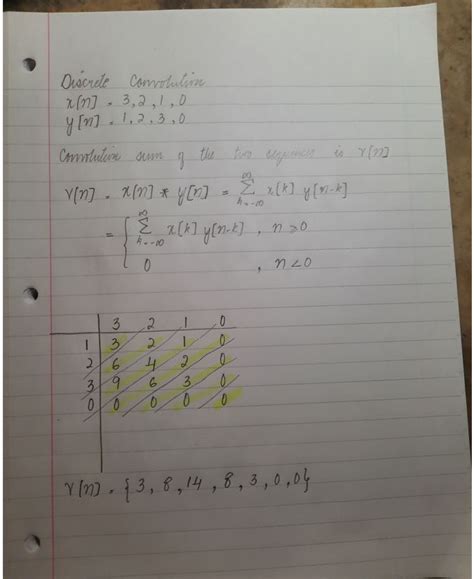 Discrete Convolution
x[n] = 3, 2, 1, 0
y[n] = 1, 2, 3, 0
Convolution sum of the two sequences is r[n]
r[n] = x[n] * y[n] = ∞ Σ k=-∞ x[k] y[n-k]
= { ∞ Σ k=-∞ x[k] y[n-k] , n ≥ 0
0 , n < 0
3 2 1 0
1 3 2 1 0
2 6 4 2 0
3 9 6 3 0
0 0 0 0 0
r[n] = {3, 8, 14, 8, 3, 0, 0}